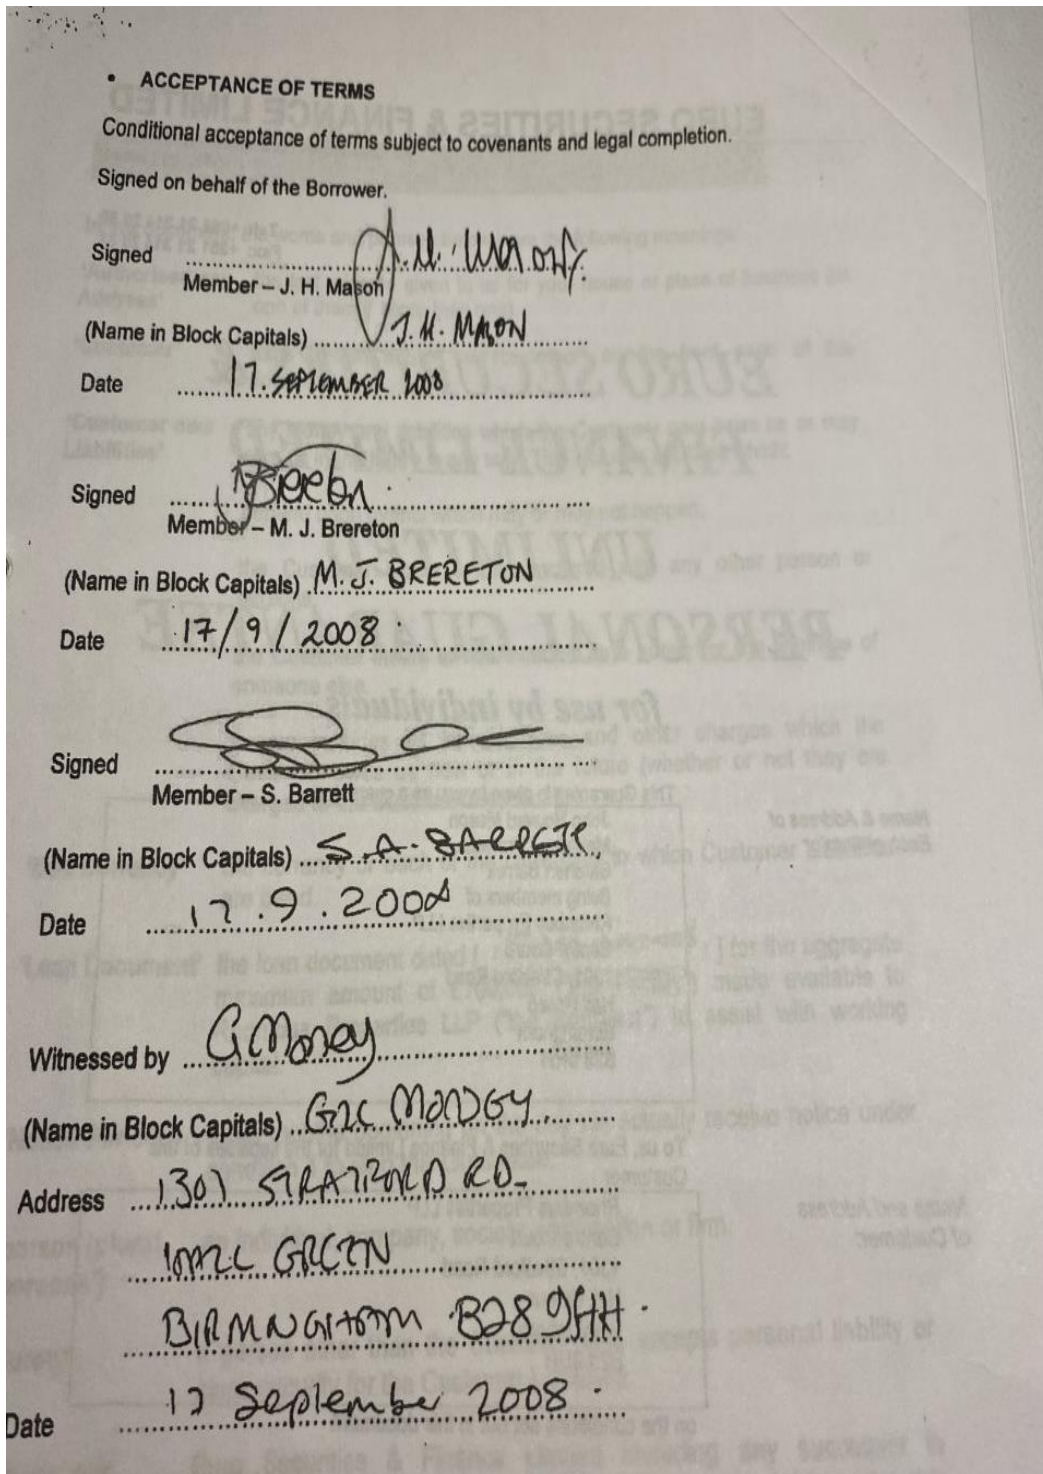 • ACCEPTANCE OF TERMS
Conditional acceptance of terms subject to covenants and legal completion.
Signed on behalf of the Borrower.
Signed
Member – J. H. Mason
(Name in Block Capitals) J. H. MASON
Date 17. SEPTEMBER 2008
Signed MJBrereton
Member – M. J. Brereton
(Name in Block Capitals) M. J. BRERETON
Date 17/9/2008
Signed
Member – S. Barrett
(Name in Block Capitals) S. A. BARRETT
Date 17.9.2008
Witnessed by
(Name in Block Capitals)
Address 1307 STRATFORD RD
HALL GREEN
BIRMINGHAM B28 9HH
Date 17 September 2008